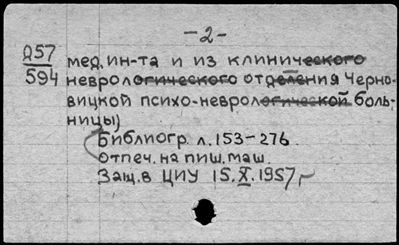 -2-
Д57
594
мед. ин-та и из клинического
неврологического отделения Черно-
вицкой психо-неврологической боль-
ницы)
Библиогр. л. 153-276.
Отпеч. на пиш. маш.
Защ. в ЦИУ 15.X.1957 г